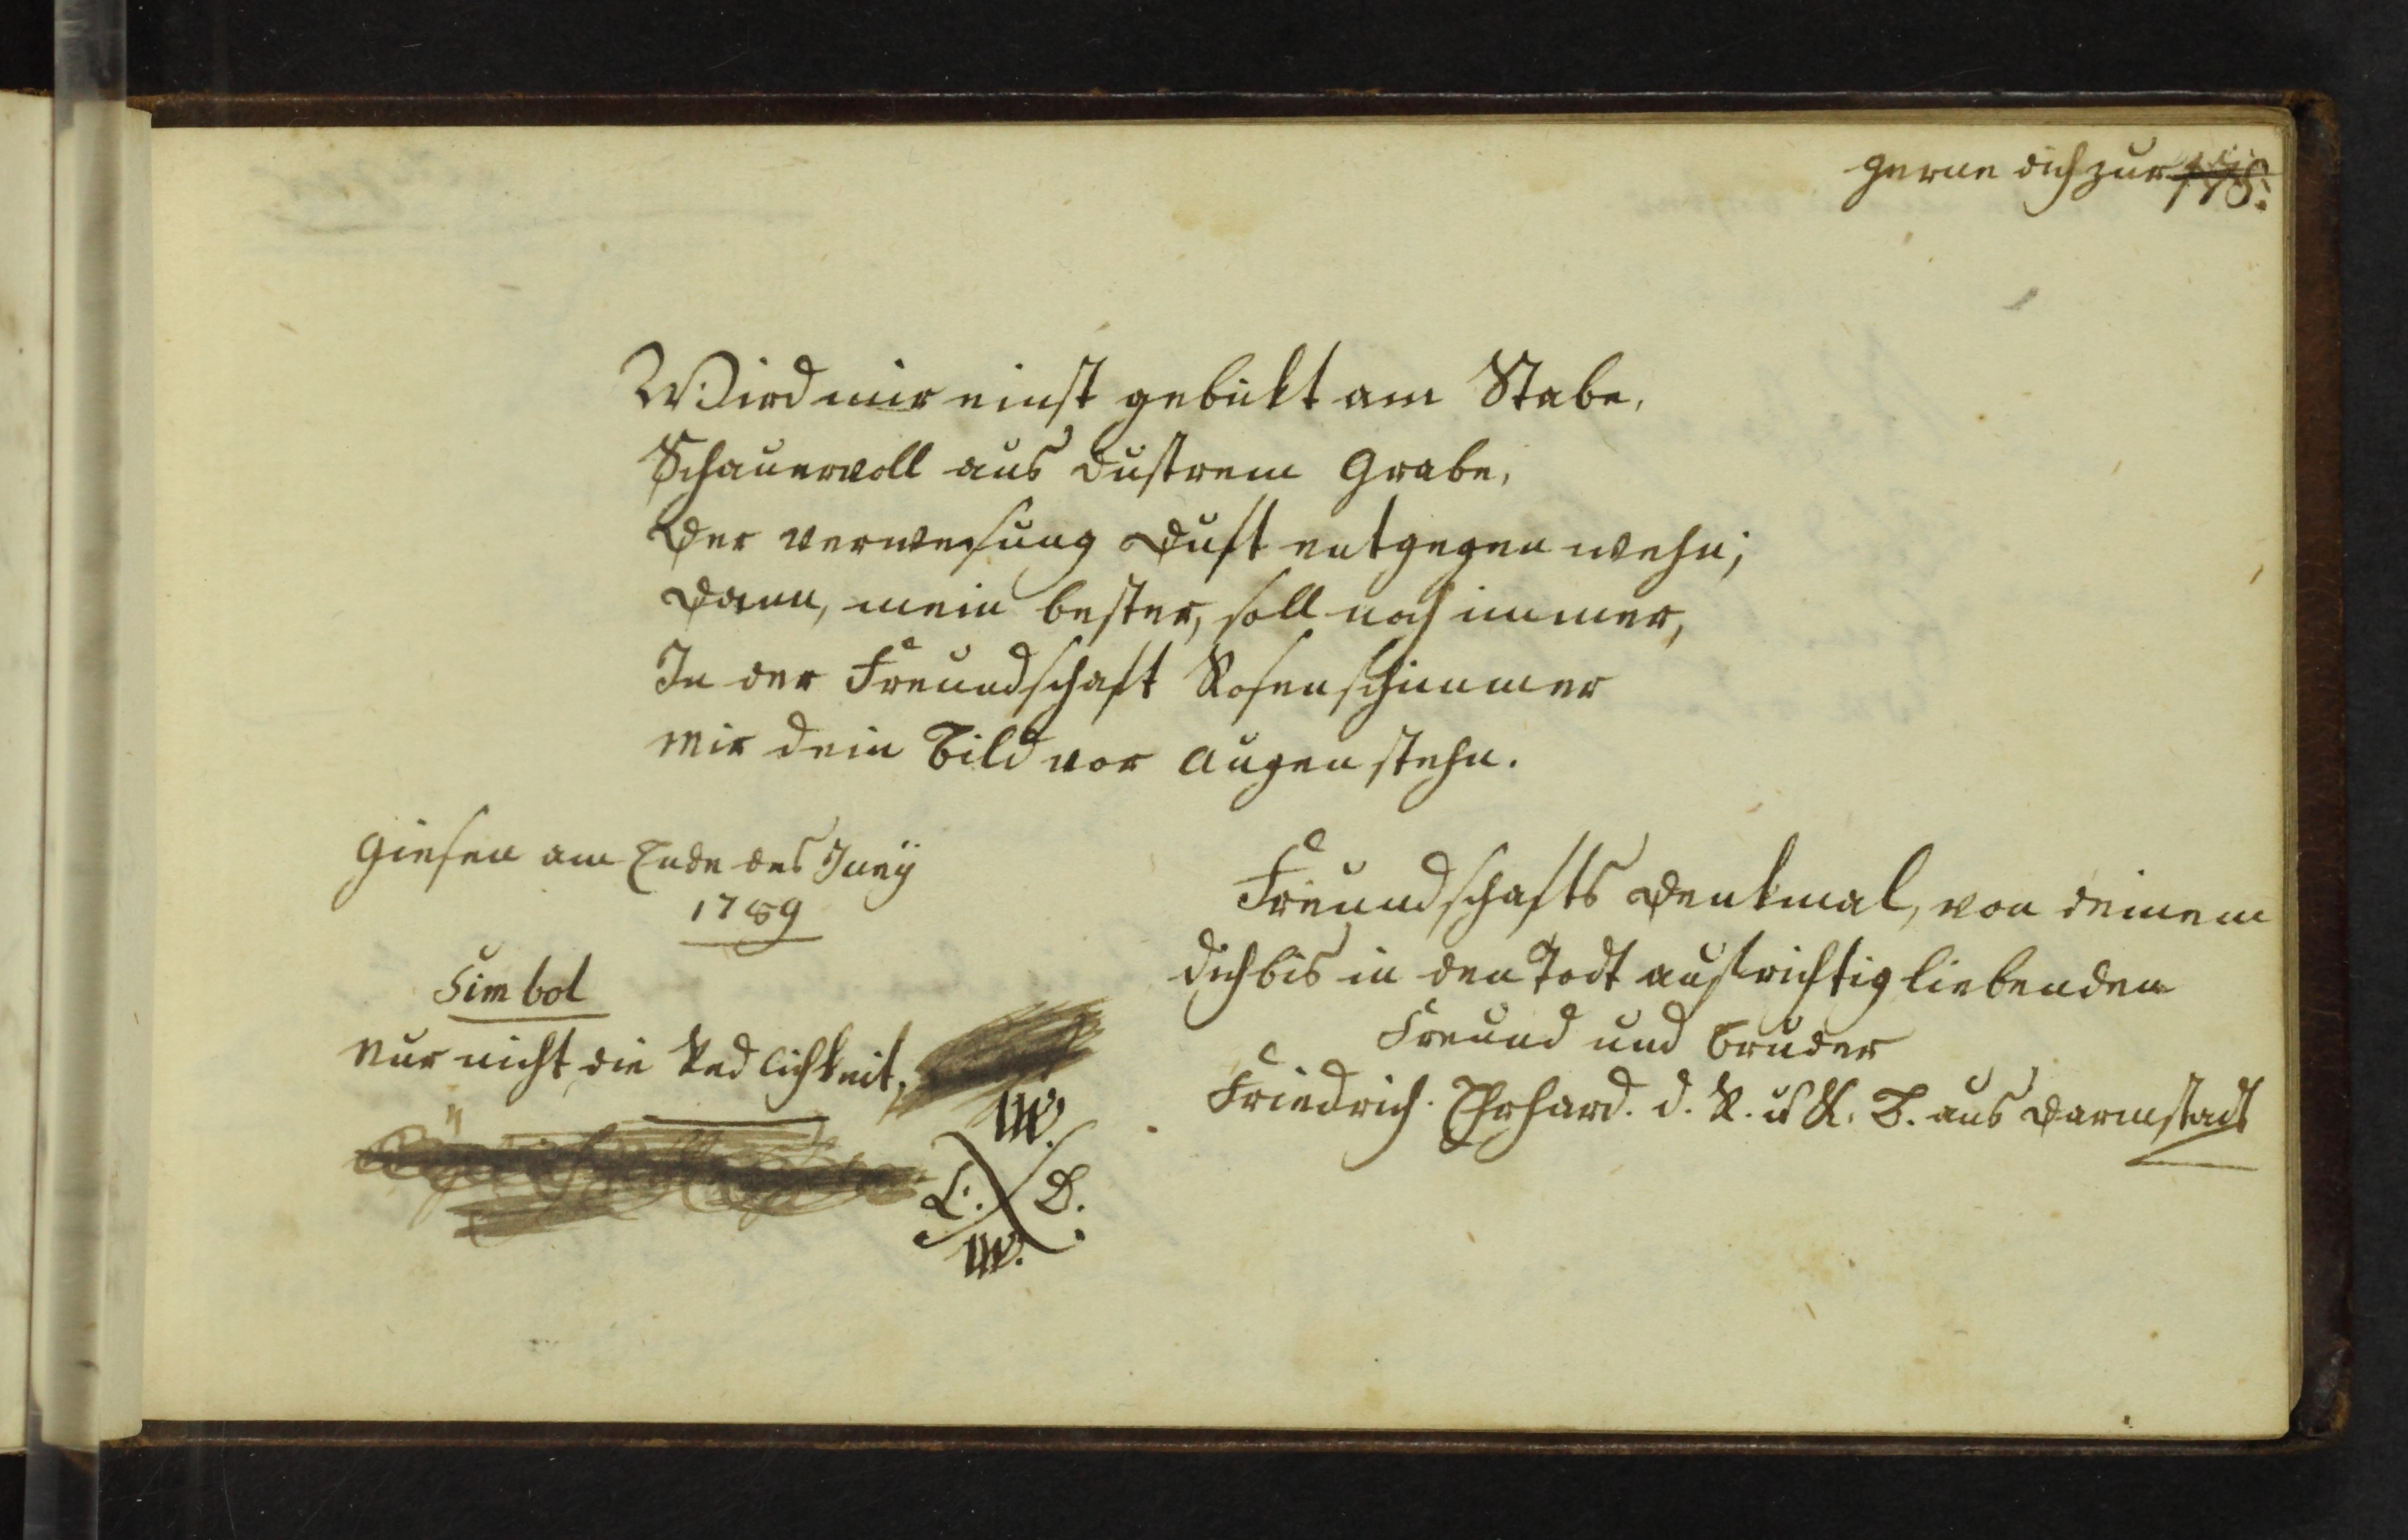 gerne dich zur 178.
Wird mir einst gebükt am Stabe,
Schauervoll aus dustrem Grabe,
Der verwesung Duft entgegen wehn;
Dann, mein bester, soll noch immer,
In der Freundschaft Rosenschimmer
mir dein Bild vor augen stehn.
Giesen am Ende des Juny
1789
Simbol
nur nicht die Redlichkeit.
W.
L. D.
W.
Freundschafts Denkmal, von deinem
dich bis in den Todt aufrichtig liebenden
Freund und bruder
Friedrich Ehrhard. d. R. u K. B. aus Darmstadt